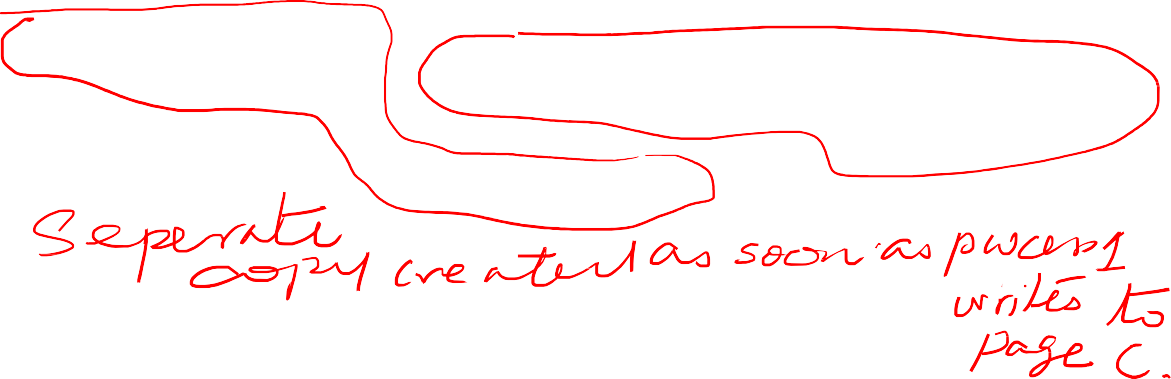 Seperate
copy created as soon as process1
writes to
page C.